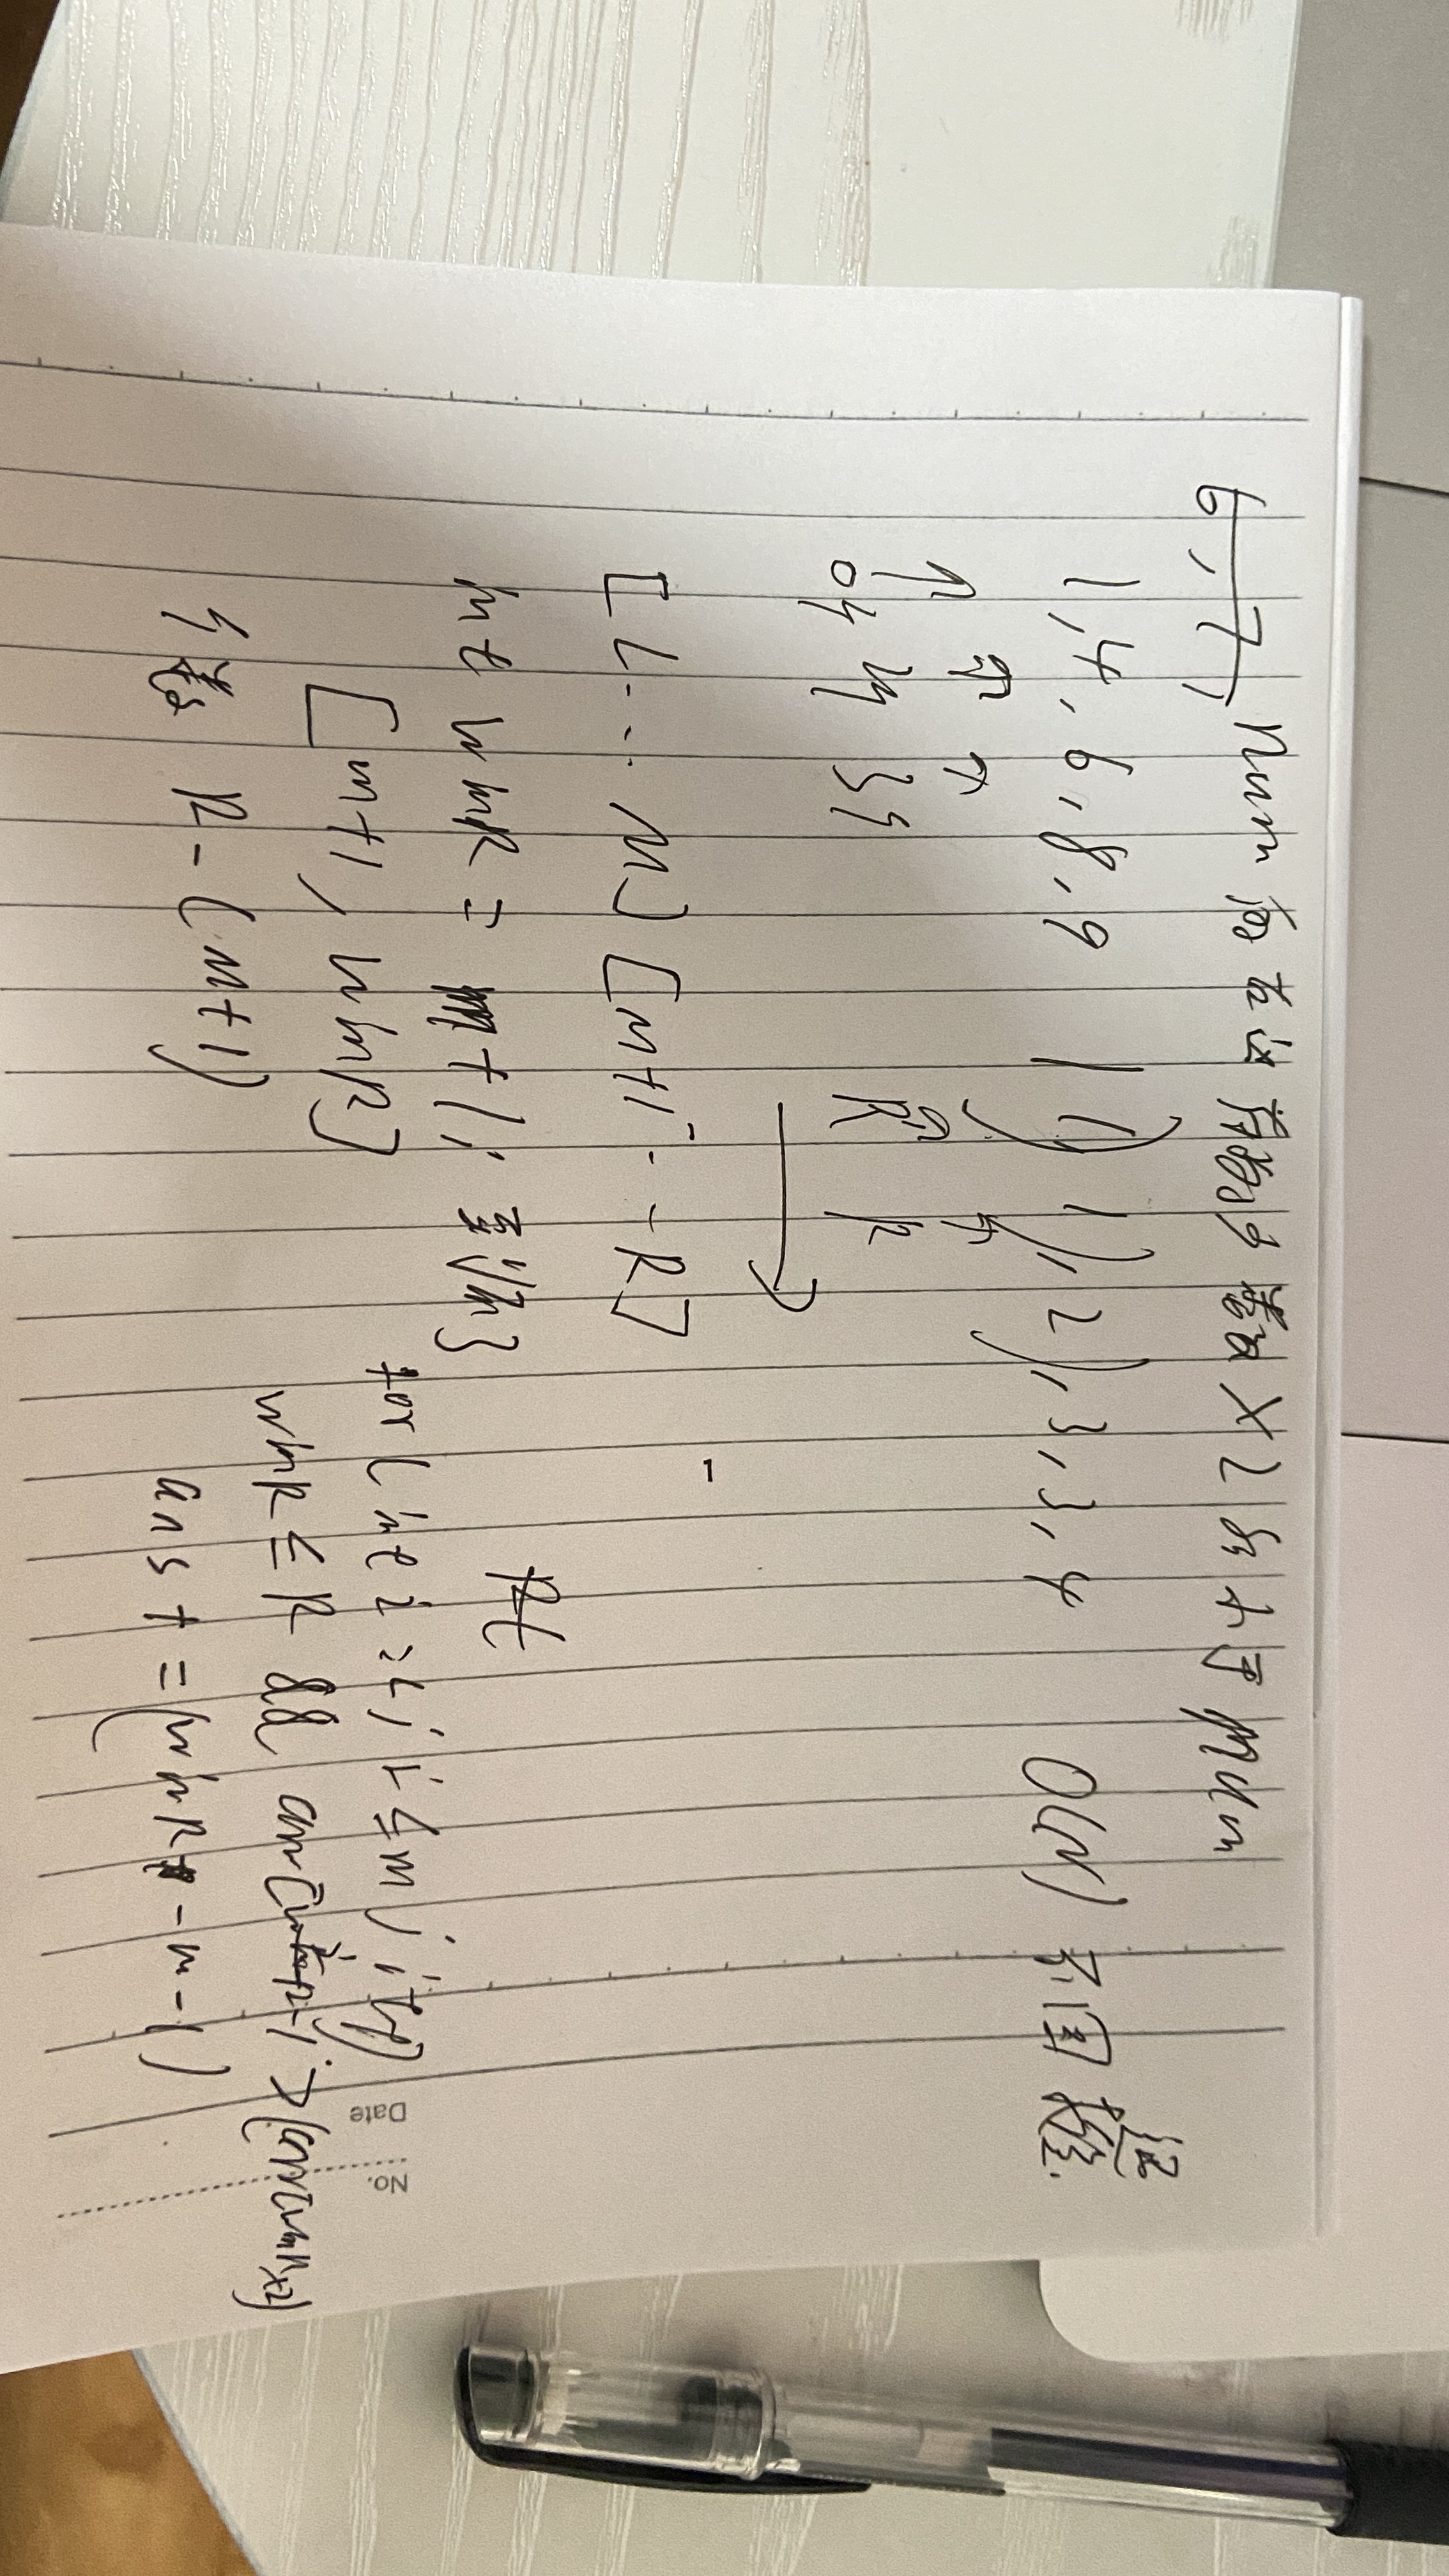 6, 7, num 向右边有多少数 × 2 后小于 num
1, 4, 6, 8, 9 | 1) 1), 2), 3, 3, 4 O(N) 不回退
0个 2个 3个 R R
[L... M] [M+1 - - R]
int winR = m+1;
[m+1, winR)
个数 R-(M+1)
for(int i = L; i ≤ m; i++)
winR ≤ R && arr[i] > (arr[winR×2)
ans += (winR - m - 1)
No.
Date